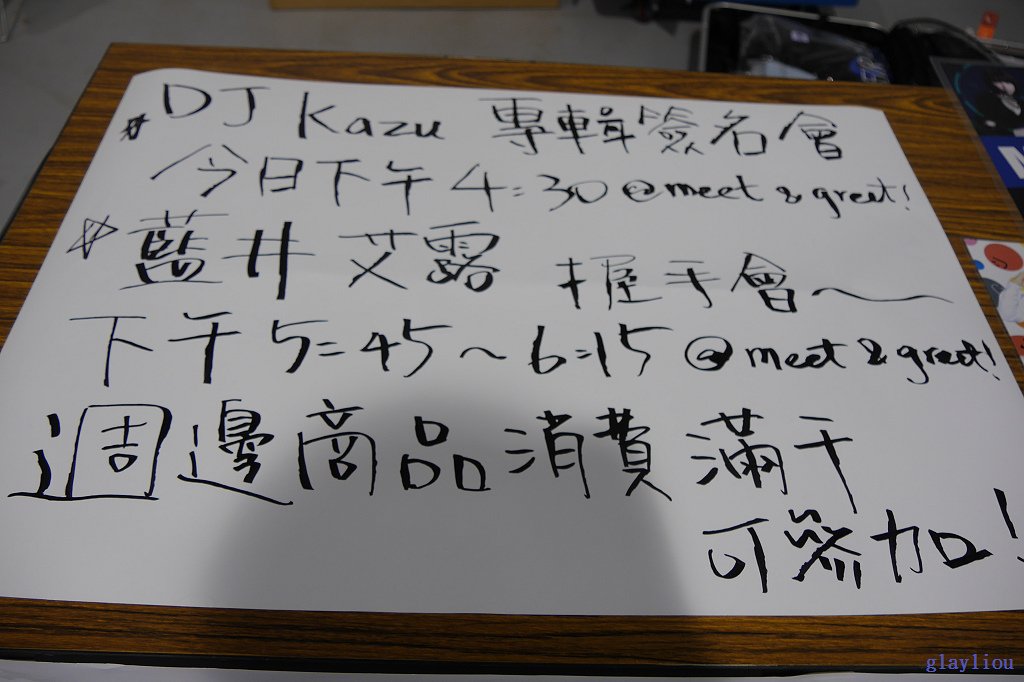 * DJ Kazu 專輯簽名會
今日下午 4:30 @meet & greet!
☆ 藍井艾露 握手會~
下午 5:45~6:15 @meet & greet!
週邊商品消費滿千
可參加!
N
glayliou